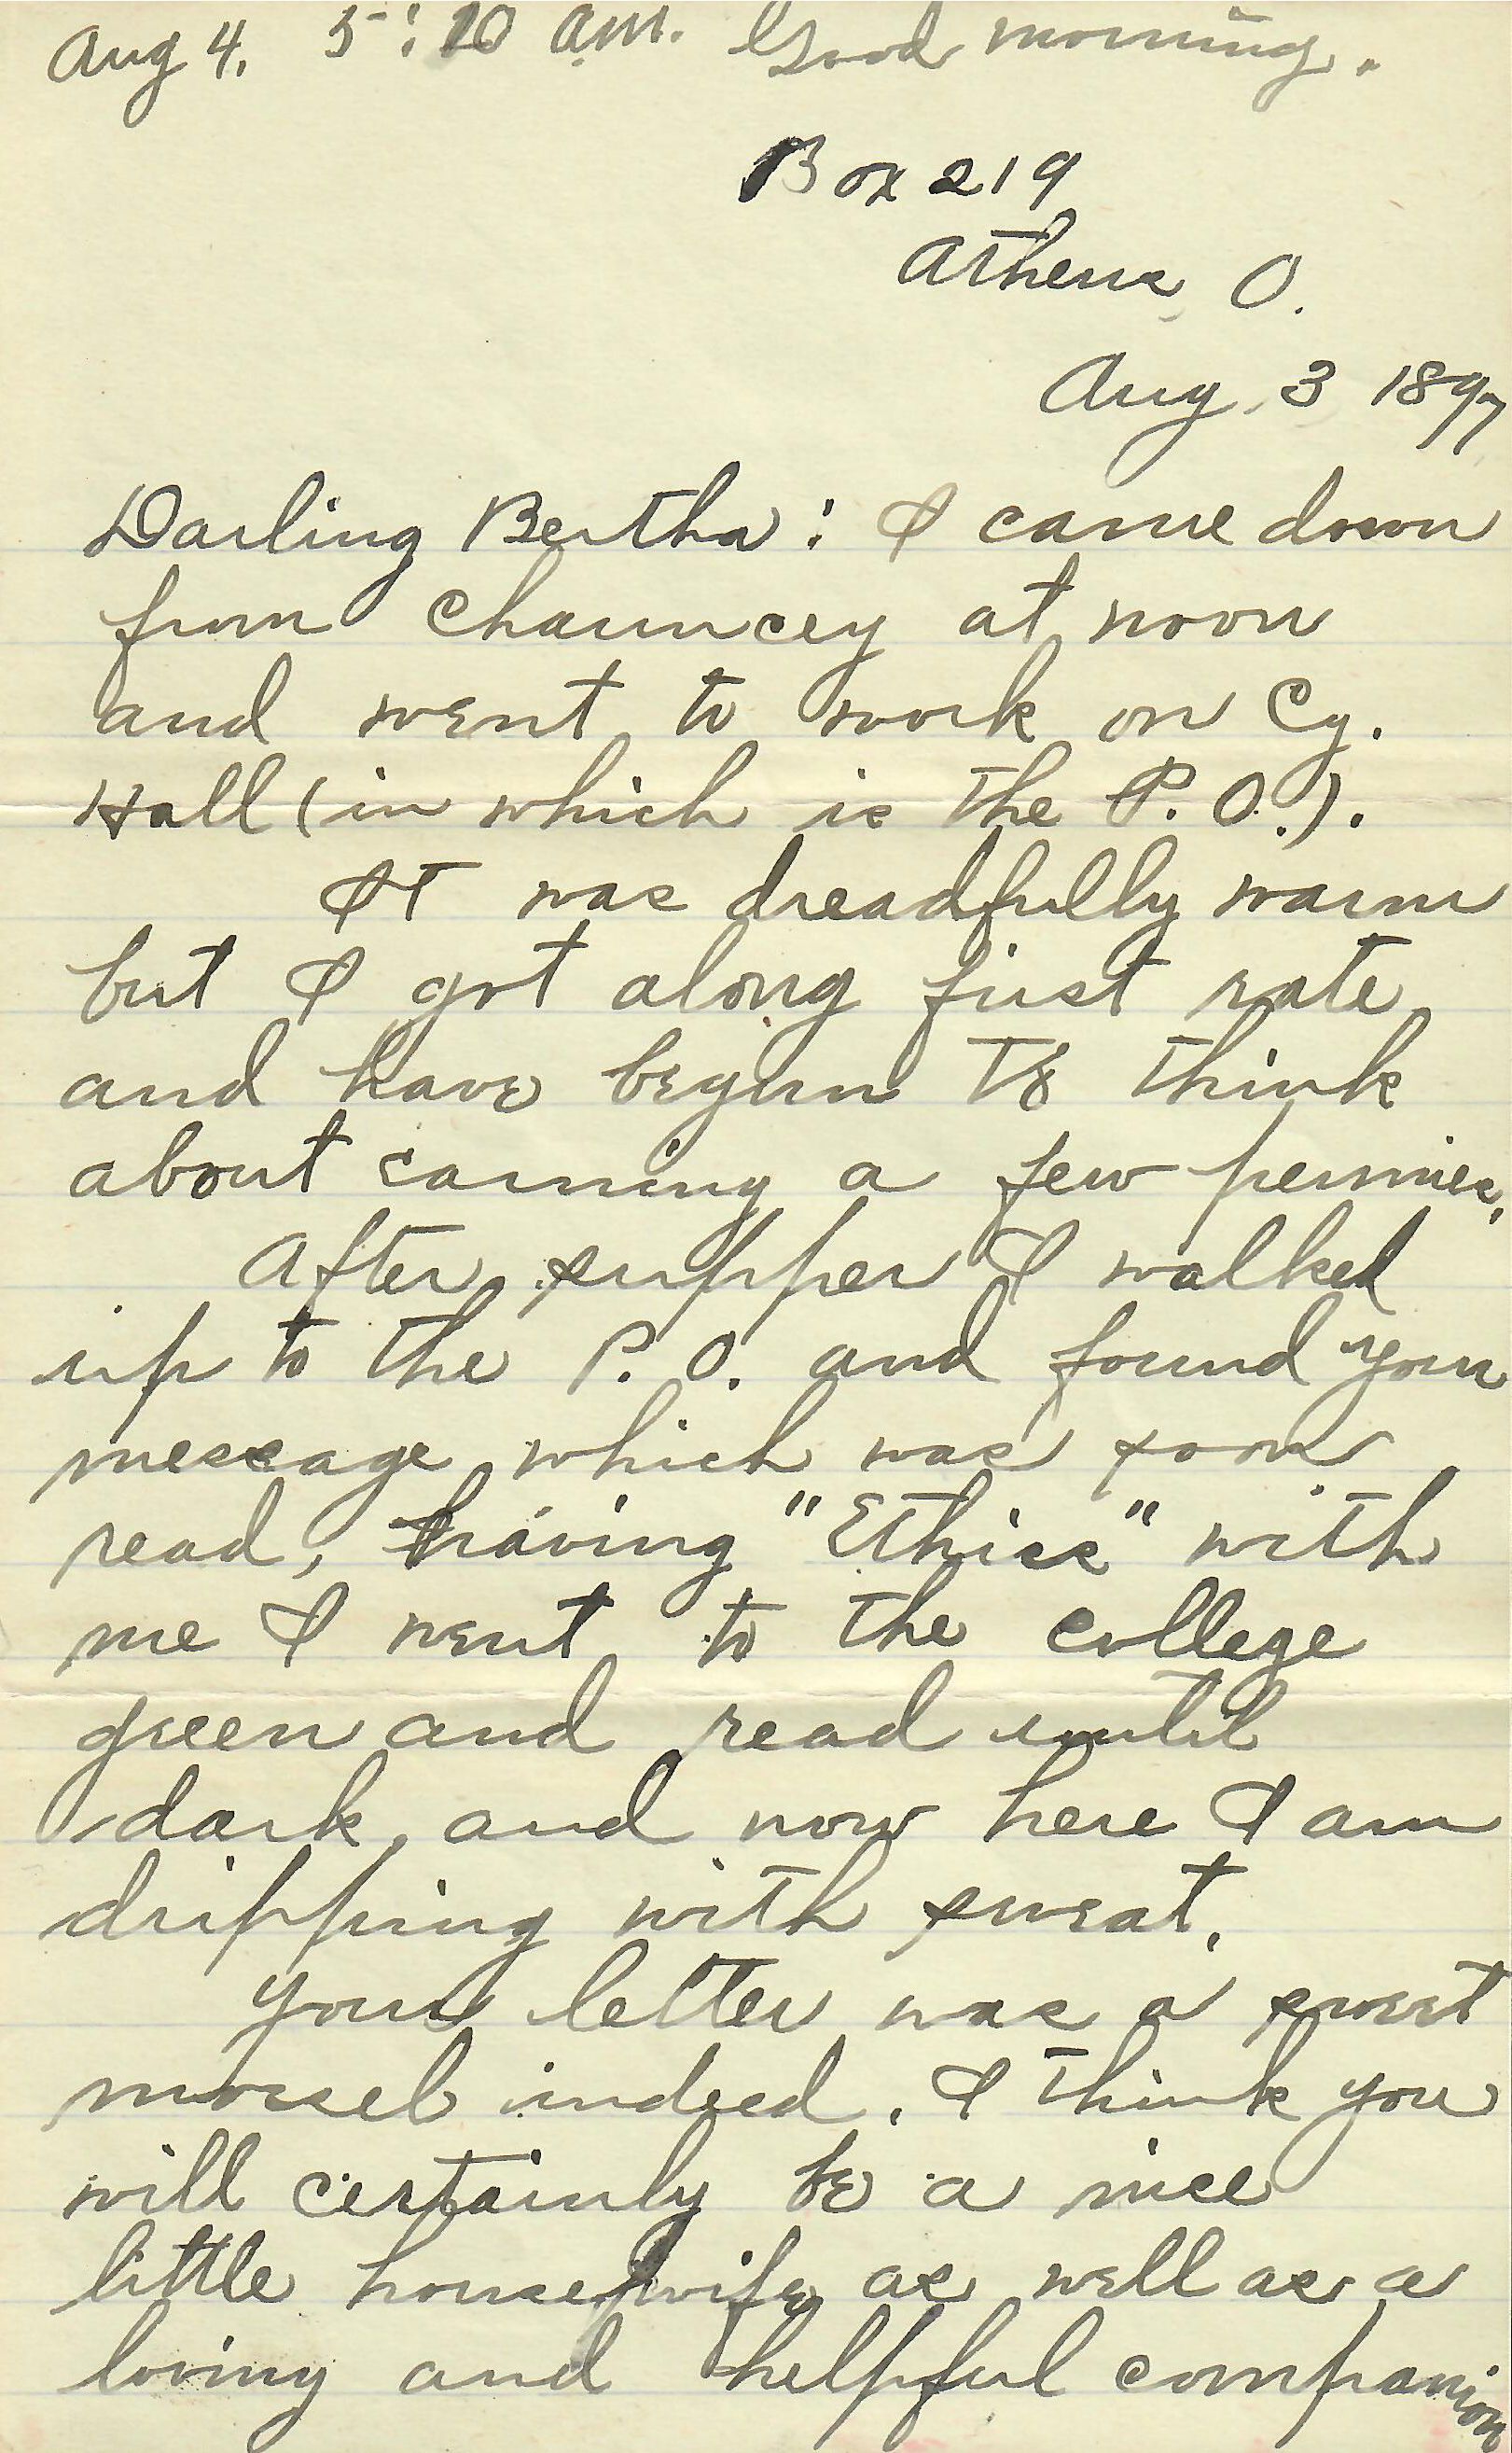 Aug 4. 5:20 am. Good morning.
Box 219
Athens, O.
Aug. 3 1897
Darling Bertha: I came down
from Chauncey at noon
and went to work on Cy.
Hall (in which is the P.O.).
It was dreadfully warm
but I got along first rate
and have begun to think
about earning a few pennies.
After supper I walked
up to the P.O. and found your
message which was soon
read, having "Ethics" with
me I went to the college
green and read until
dark, and now here I am
dripping with sweat.
Your letter was a sweet
morsel indeed. I think you
will certainly be a nice
little housewife as well as a
loving and helpful companion